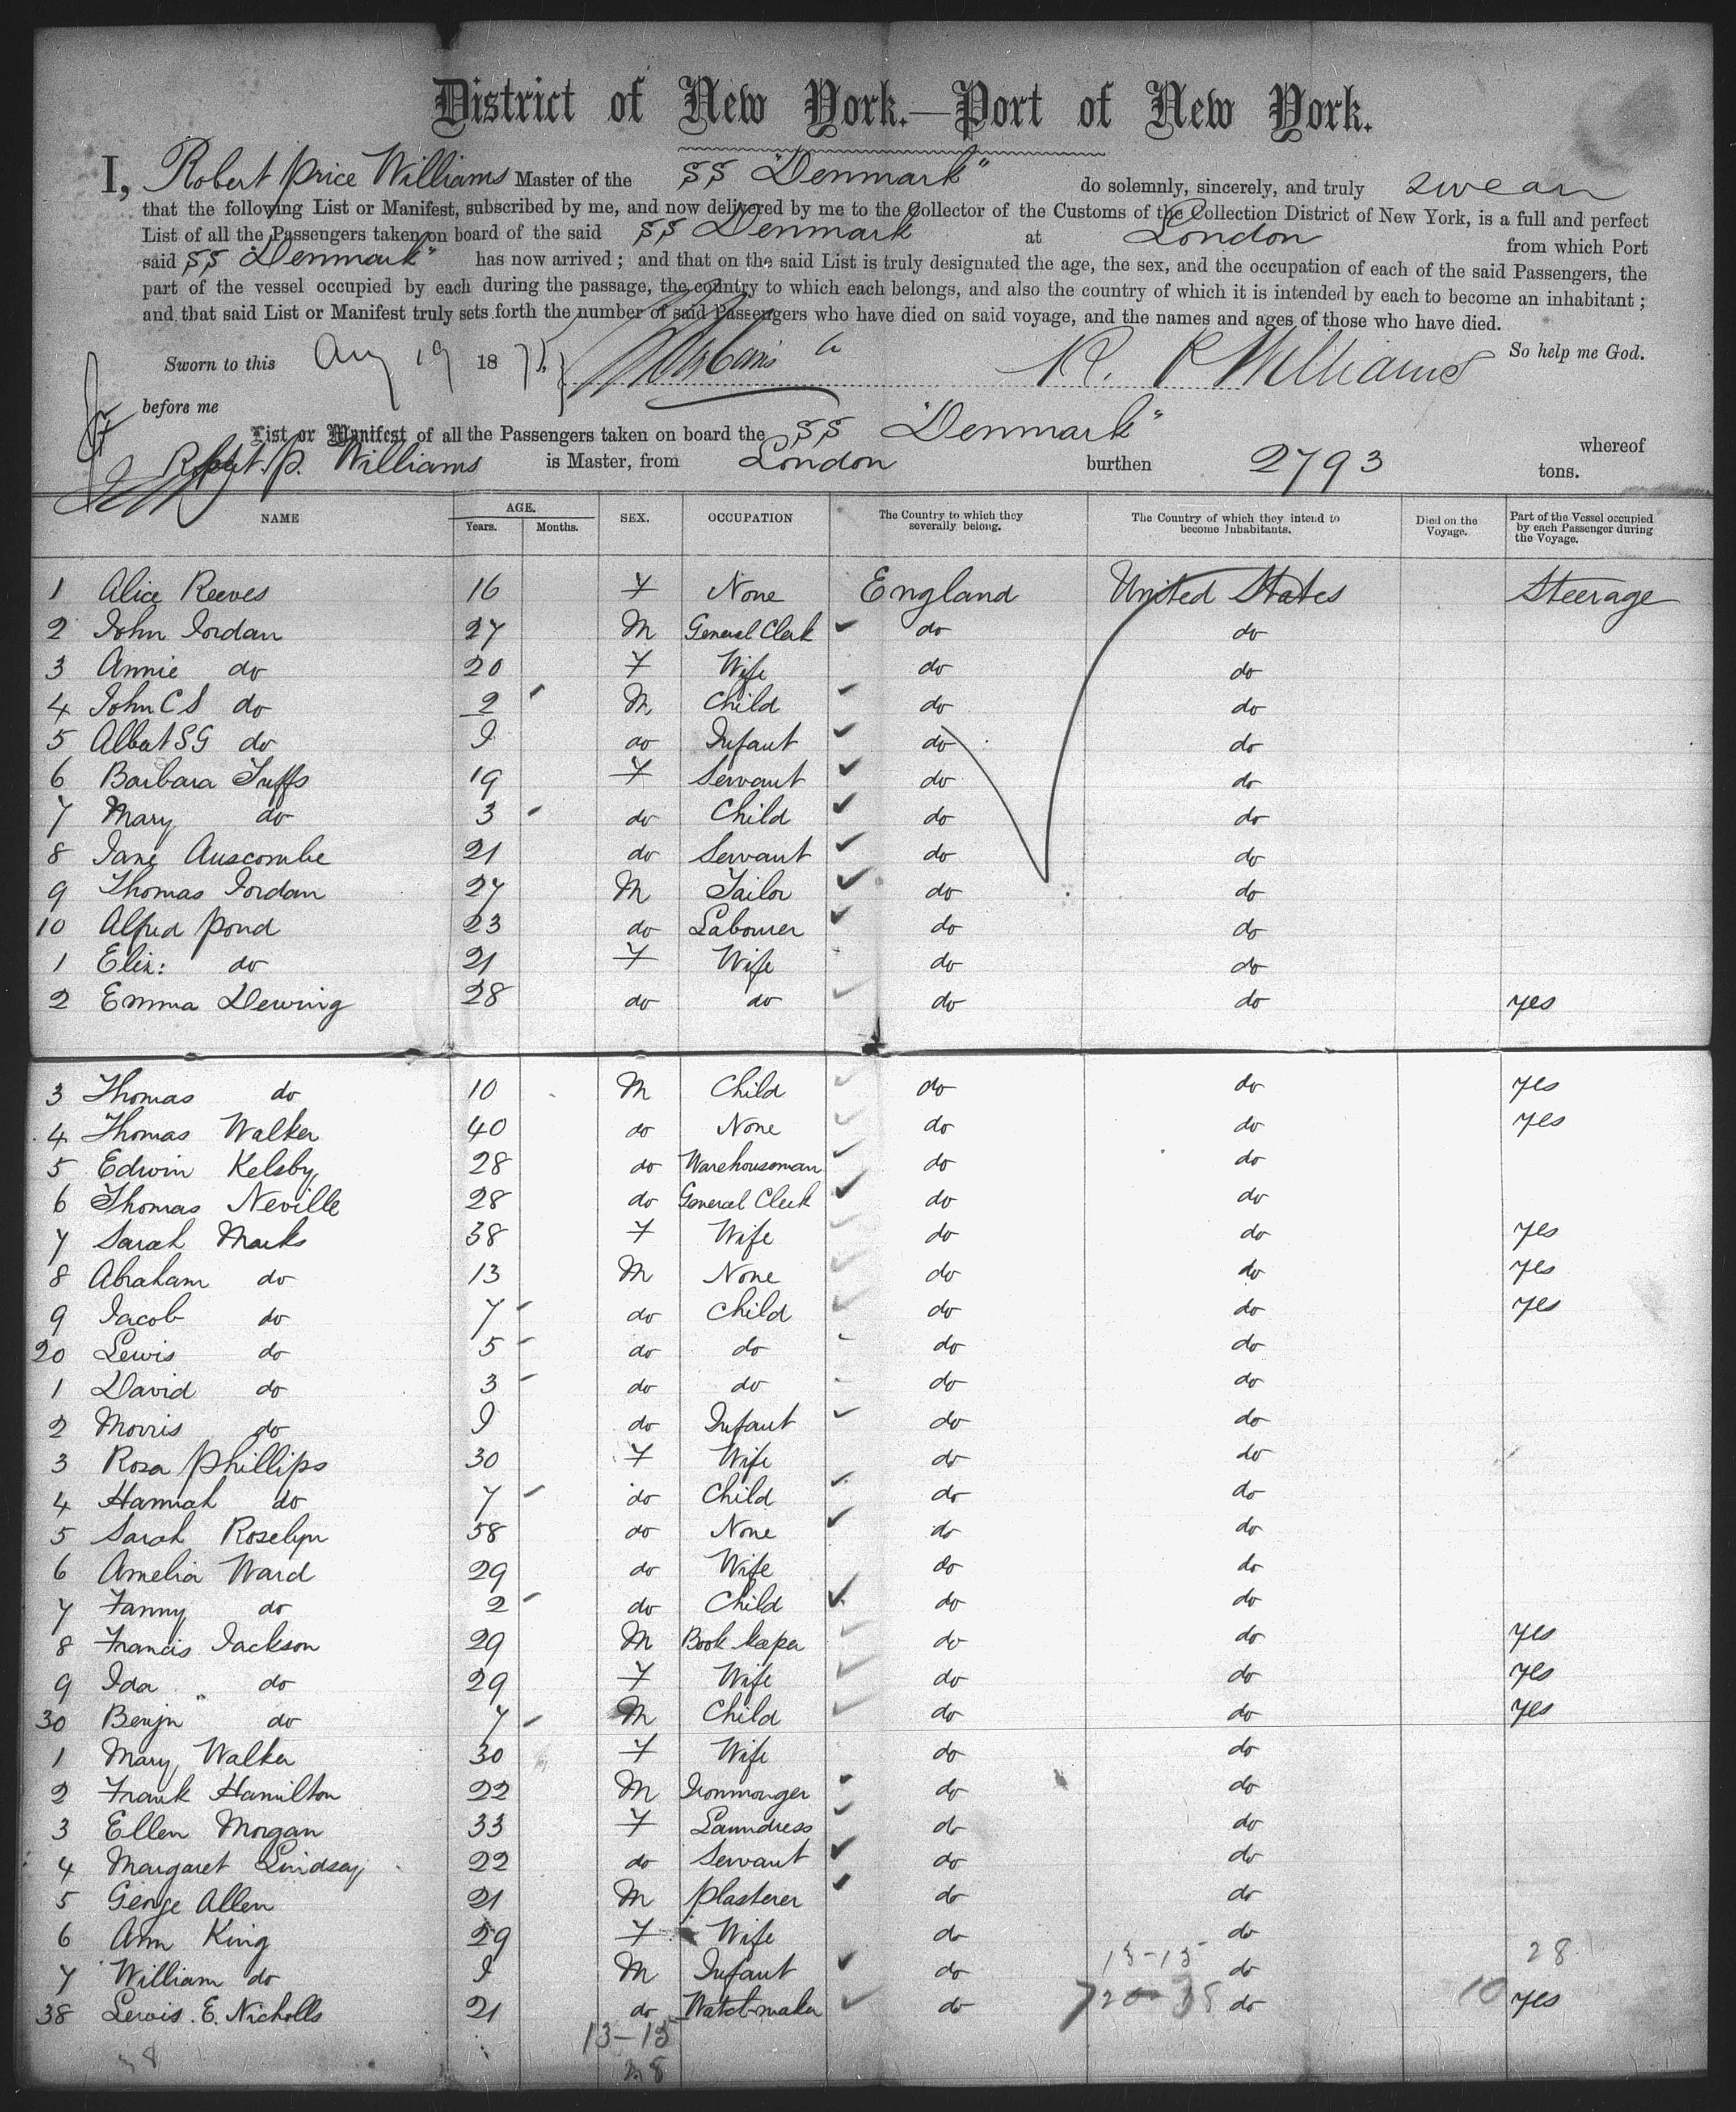 District of New York.—Port of New York.
I, Robert Price Williams Master of the SS "Denmark" do solemnly, sincerely, and truly swear
that the following List or Manifest, subscribed by me, and now delivered by me to the Collector of the Customs of the Collection District of New York, is a full and perfect
List of all the Passengers taken on board of the said SS Denmark at London from which Port
said SS "Denmark" has now arrived; and that on the said List is truly designated the age, the sex, and the occupation of each of the said Passengers, the
part of the vessel occupied by each during the passage, the country to which each belongs, and also the country of which it is intended by each to become an inhabitant;
and that said List or Manifest truly sets forth the number of said Passengers who have died on said voyage, and the names and ages of those who have died.
So help me God.
Sworn to this Aug 19 18 R. P Williams
before me
List or Manifest of all the Passengers taken on board the SS "Denmark" whereof
Robt. P. Williams is Master, from London burthen 2793 tons.
NAME AGE. Years. Months. SEX. OCCUPATION The Country to which they severally belong. The Country of which they intend to become Inhabitants. Died on the Voyage. Part of the Vessel occupied by each Passenger during the Voyage.
1 Alice Reeves 16 F None England United States Steerage
2 John Jordan 27 M General Clerk do do
3 Annie do 20 F Wife do do
4 John C S do 2 M Child do do
5 Albert S G do I do Infant do do
6 Barbara Tuffs 19 F Servant do do
7 Mary do 3 do Child do do
8 Jane Auscombe 21 do Servant do do
9 Thomas Jordan 27 M Tailor do do
10 Alfred Pond 23 do Labourer do do
1 Eliz: do 21 F Wife do do
2 Emma Dewing 28 do do do do yes
3 Thomas do 10 M Child do do yes
4 Thomas Walker 40 do None do do yes
5 Edwin Kelsby 28 do Warehouseman do do
6 Thomas Neville 28 do General Clerk do do
7 Sarah Marks 38 F Wife do do yes
8 Abraham do 13 M None do do yes
9 Jacob do 7 do Child do do yes
20 Lewis do 5 do do do do
1 David do 3 do do do do
2 Morris do I do Infant do do
3 Rosa Phillips 30 F Wife do do
4 Hannah do 7 do Child do do
5 Sarah Roselyn 58 do None do do
6 Amelia Ward 29 do Wife do do
7 Fanny do 2 do Child do do
8 Francis Jackson 29 M Book keeper do do yes
9 Ida do 29 F Wife do do yes
30 Benjn do 7 M Child do do yes
1 Mary Walker 30 F Wife do do
2 Frank Hamilton 22 M Ironmonger do do
3 Ellen Morgan 33 F Laundress do do
4 Margaret Lindsay 22 do Servant do do
5 George Allen 21 M Plasterer do do
6 Ann King 29 F Wife do do
7 William do I M Infant do 13-15 do 28
38 Lewis. E. Nicholls 21 do Watchmaker do do 10 yes
13-15
28